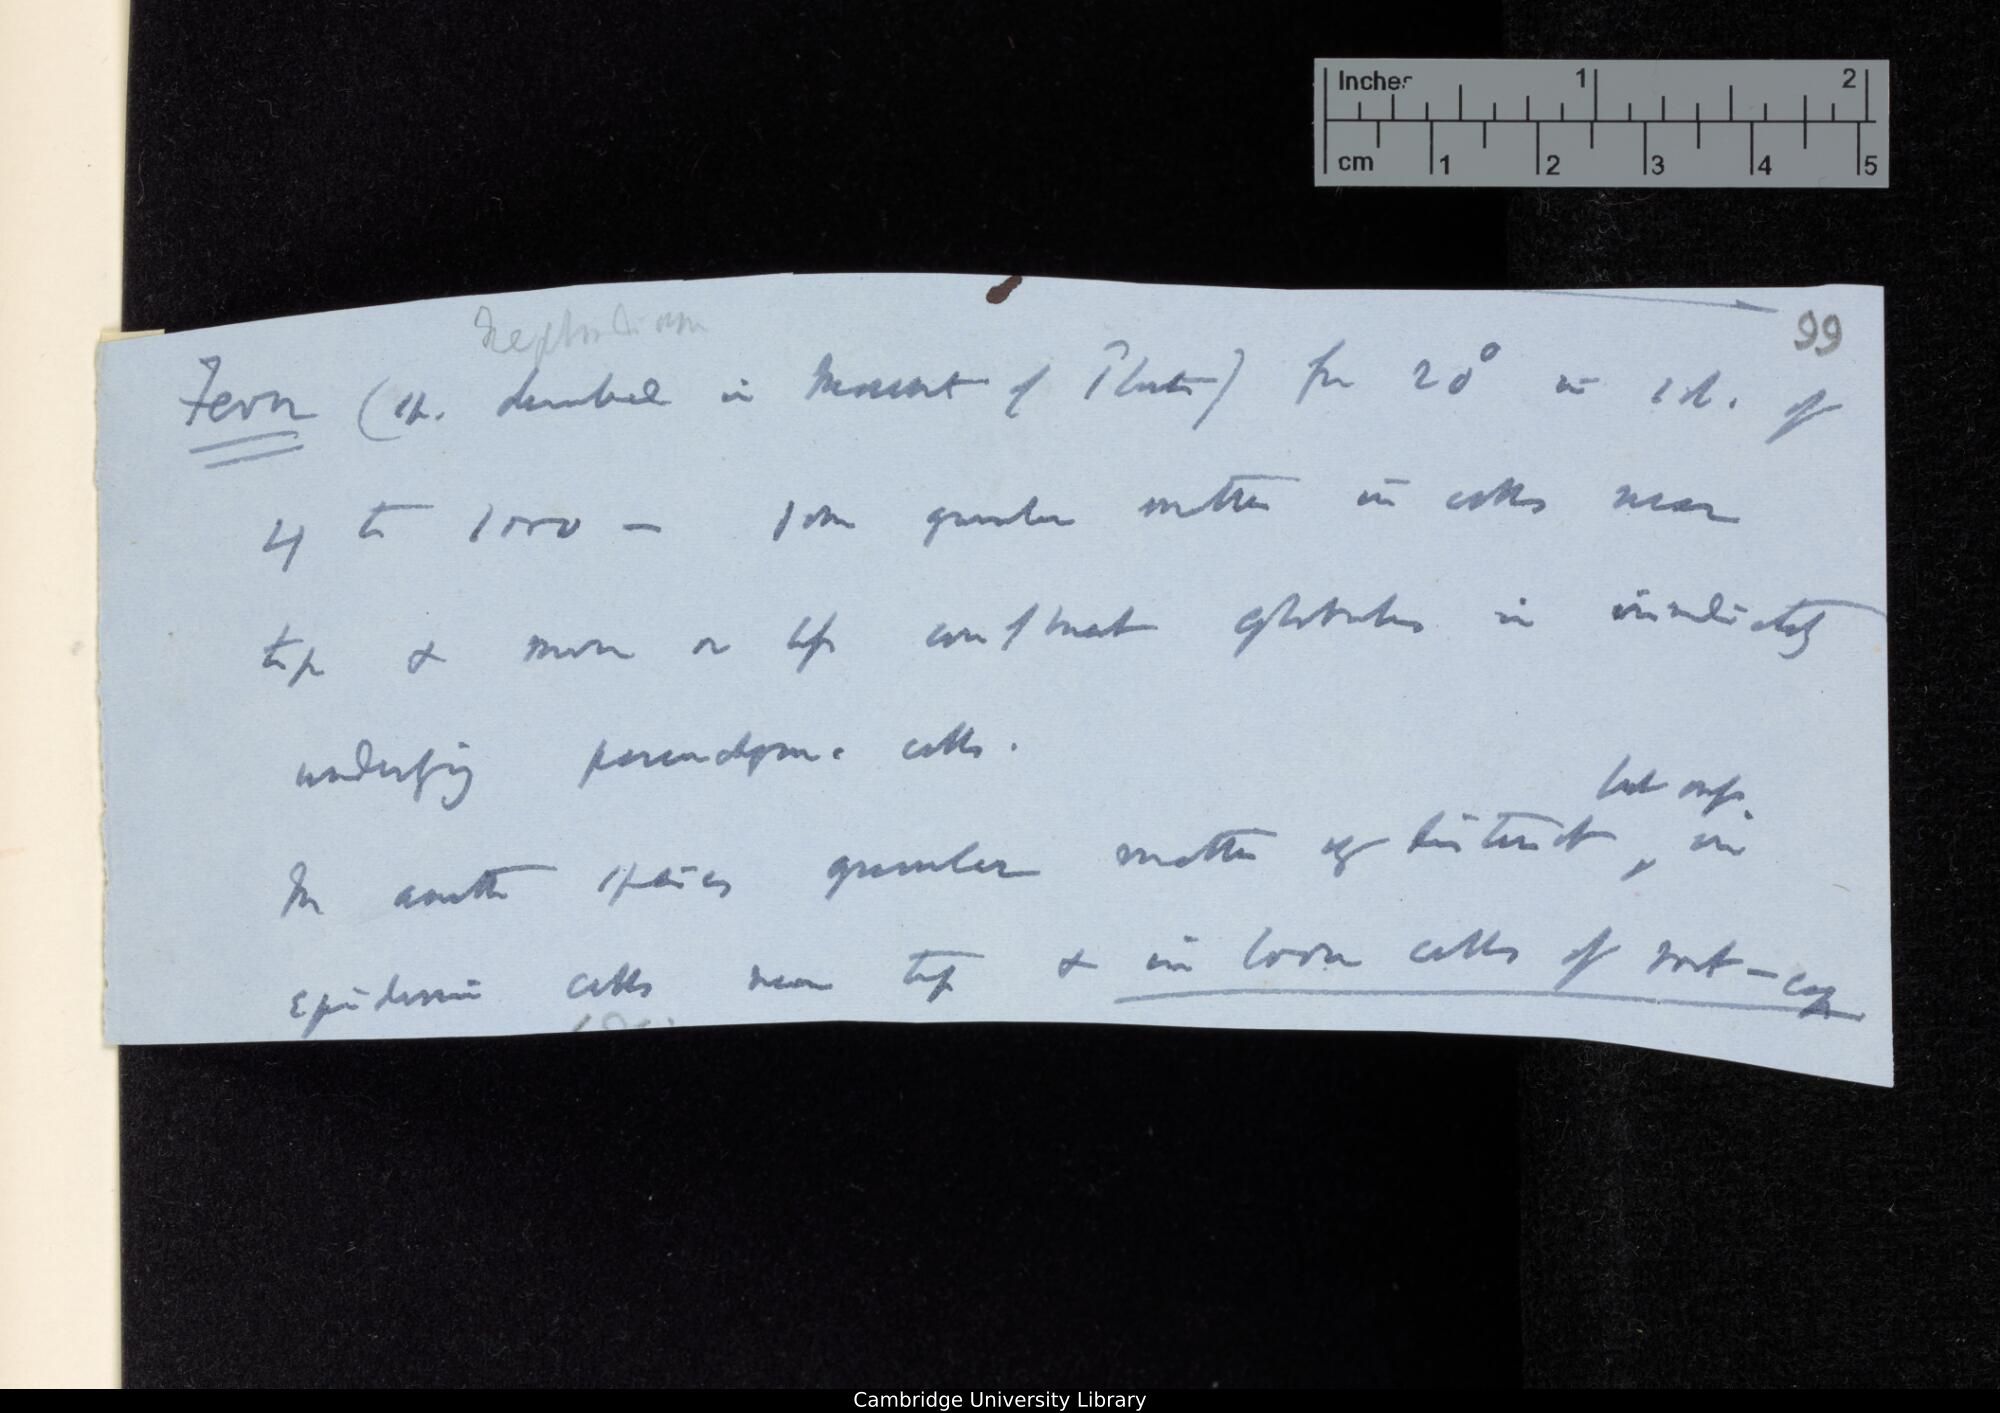 Inches 1 2
cm 1 2 3 4 5
99
Nephrodium
Fern (sp. described in Movement of Plants) for 20° in sol. of
4 to 1000 — some granular matter in cells near
tip & more or less conspicuous globules in immediately
underlying parenchyma cells.
but only
In another species granular matter distinct, in
Epidermic cells near tip & in loose cells of root-cap
Cambridge University Library